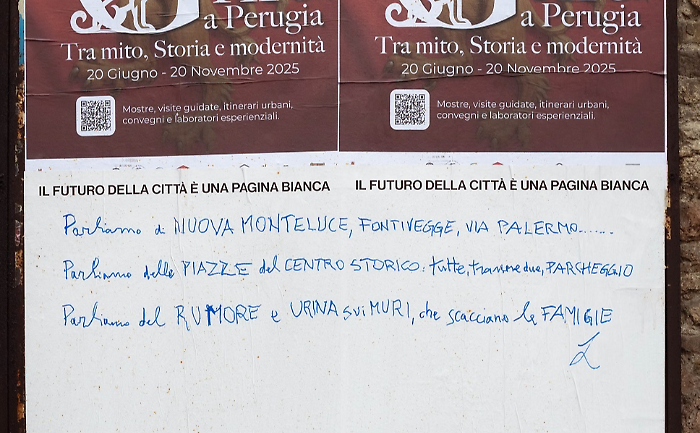 a Perugia
Tra mito, Storia e modernità
20 Giugno - 20 Novembre 2025
Mostre, visite guidate, itinerari urbani,
convegni e laboratori esperienziali.
a Perugia
Tra mito, Storia e modernità
20 Giugno - 20 Novembre 2025
Mostre, visite guidate, itinerari urbani,
convegni e laboratori esperienziali.
IL FUTURO DELLA CITTÀ È UNA PAGINA BIANCA
IL FUTURO DELLA CITTÀ È UNA PAGINA BIANCA
Parliamo di NUOVA MONTELUCE, FONTIVEGGE, VIA PALERMO.......
Parliamo delle PIAZZE del CENTRO STORICO: tutte, tranne due, PARCHEGGIO
Parliamo del RUMORE e URINA sui MURI, che scacciano le FAMIGIE